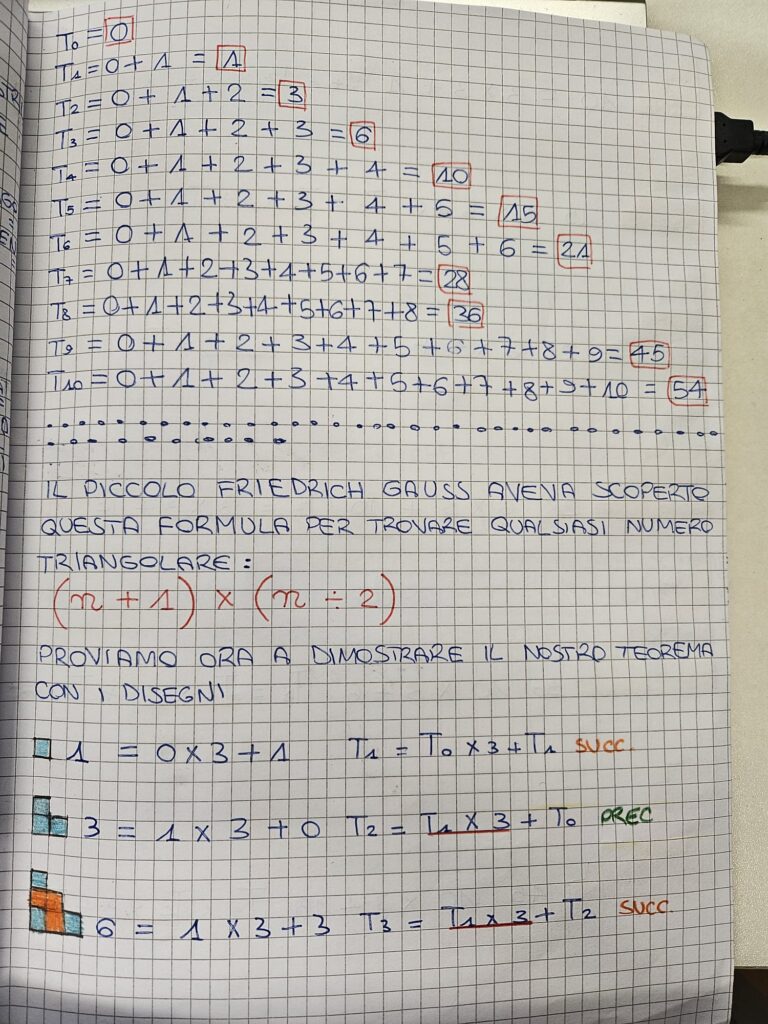 T₀ = 0
T₁ = 0 + 1 = 1
T₂ = 0 + 1 + 2 = 3
T₃ = 0 + 1 + 2 + 3 = 6
T₄ = 0 + 1 + 2 + 3 + 4 = 10
T₅ = 0 + 1 + 2 + 3 + 4 + 5 = 15
T₆ = 0 + 1 + 2 + 3 + 4 + 5 + 6 = 21
T₇ = 0 + 1 + 2 + 3 + 4 + 5 + 6 + 7 = 28
T₈ = 0 + 1 + 2 + 3 + 4 + 5 + 6 + 7 + 8 = 36
T₉ = 0 + 1 + 2 + 3 + 4 + 5 + 6 + 7 + 8 + 9 = 45
T₁₀ = 0 + 1 + 2 + 3 + 4 + 5 + 6 + 7 + 8 + 9 + 10 = 54
IL PICCOLO FRIEDRICH GAUSS AVEVA SCOPERTO
QUESTA FORMULA PER TROVARE QUALSIASI NUMERO
TRIANGOLARE :
(n + 1) × (n ÷ 2)
PROVIAMO ORA A DIMOSTRARE IL NOSTRO TEOREMA
CON I DISEGNI
1 = 0 × 3 + 1 T₁ = T₀ × 3 + T₁ SUCC.
3 = 1 × 3 + 0 T₂ = T₁ × 3 + T₀ PREC
6 = 1 × 3 + 3 T₃ = T₁ × 3 + T₂ SUCC.